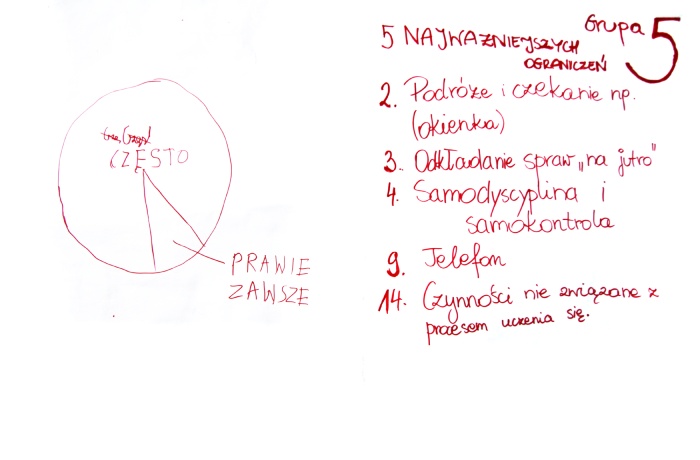 CZĘSTO
PRAWIE
ZAWSZE
Grupa 5
5 NAJWAŻNIEJSZYCH
OGRANICZEŃ
2. Podróże i czekanie np.
(okienka)
3. Odkładanie spraw „na jutro"
4. Samodyscyplina i
samokontrola
9. Telefon
14. Czynności nie związane z
procesem uczenia się.